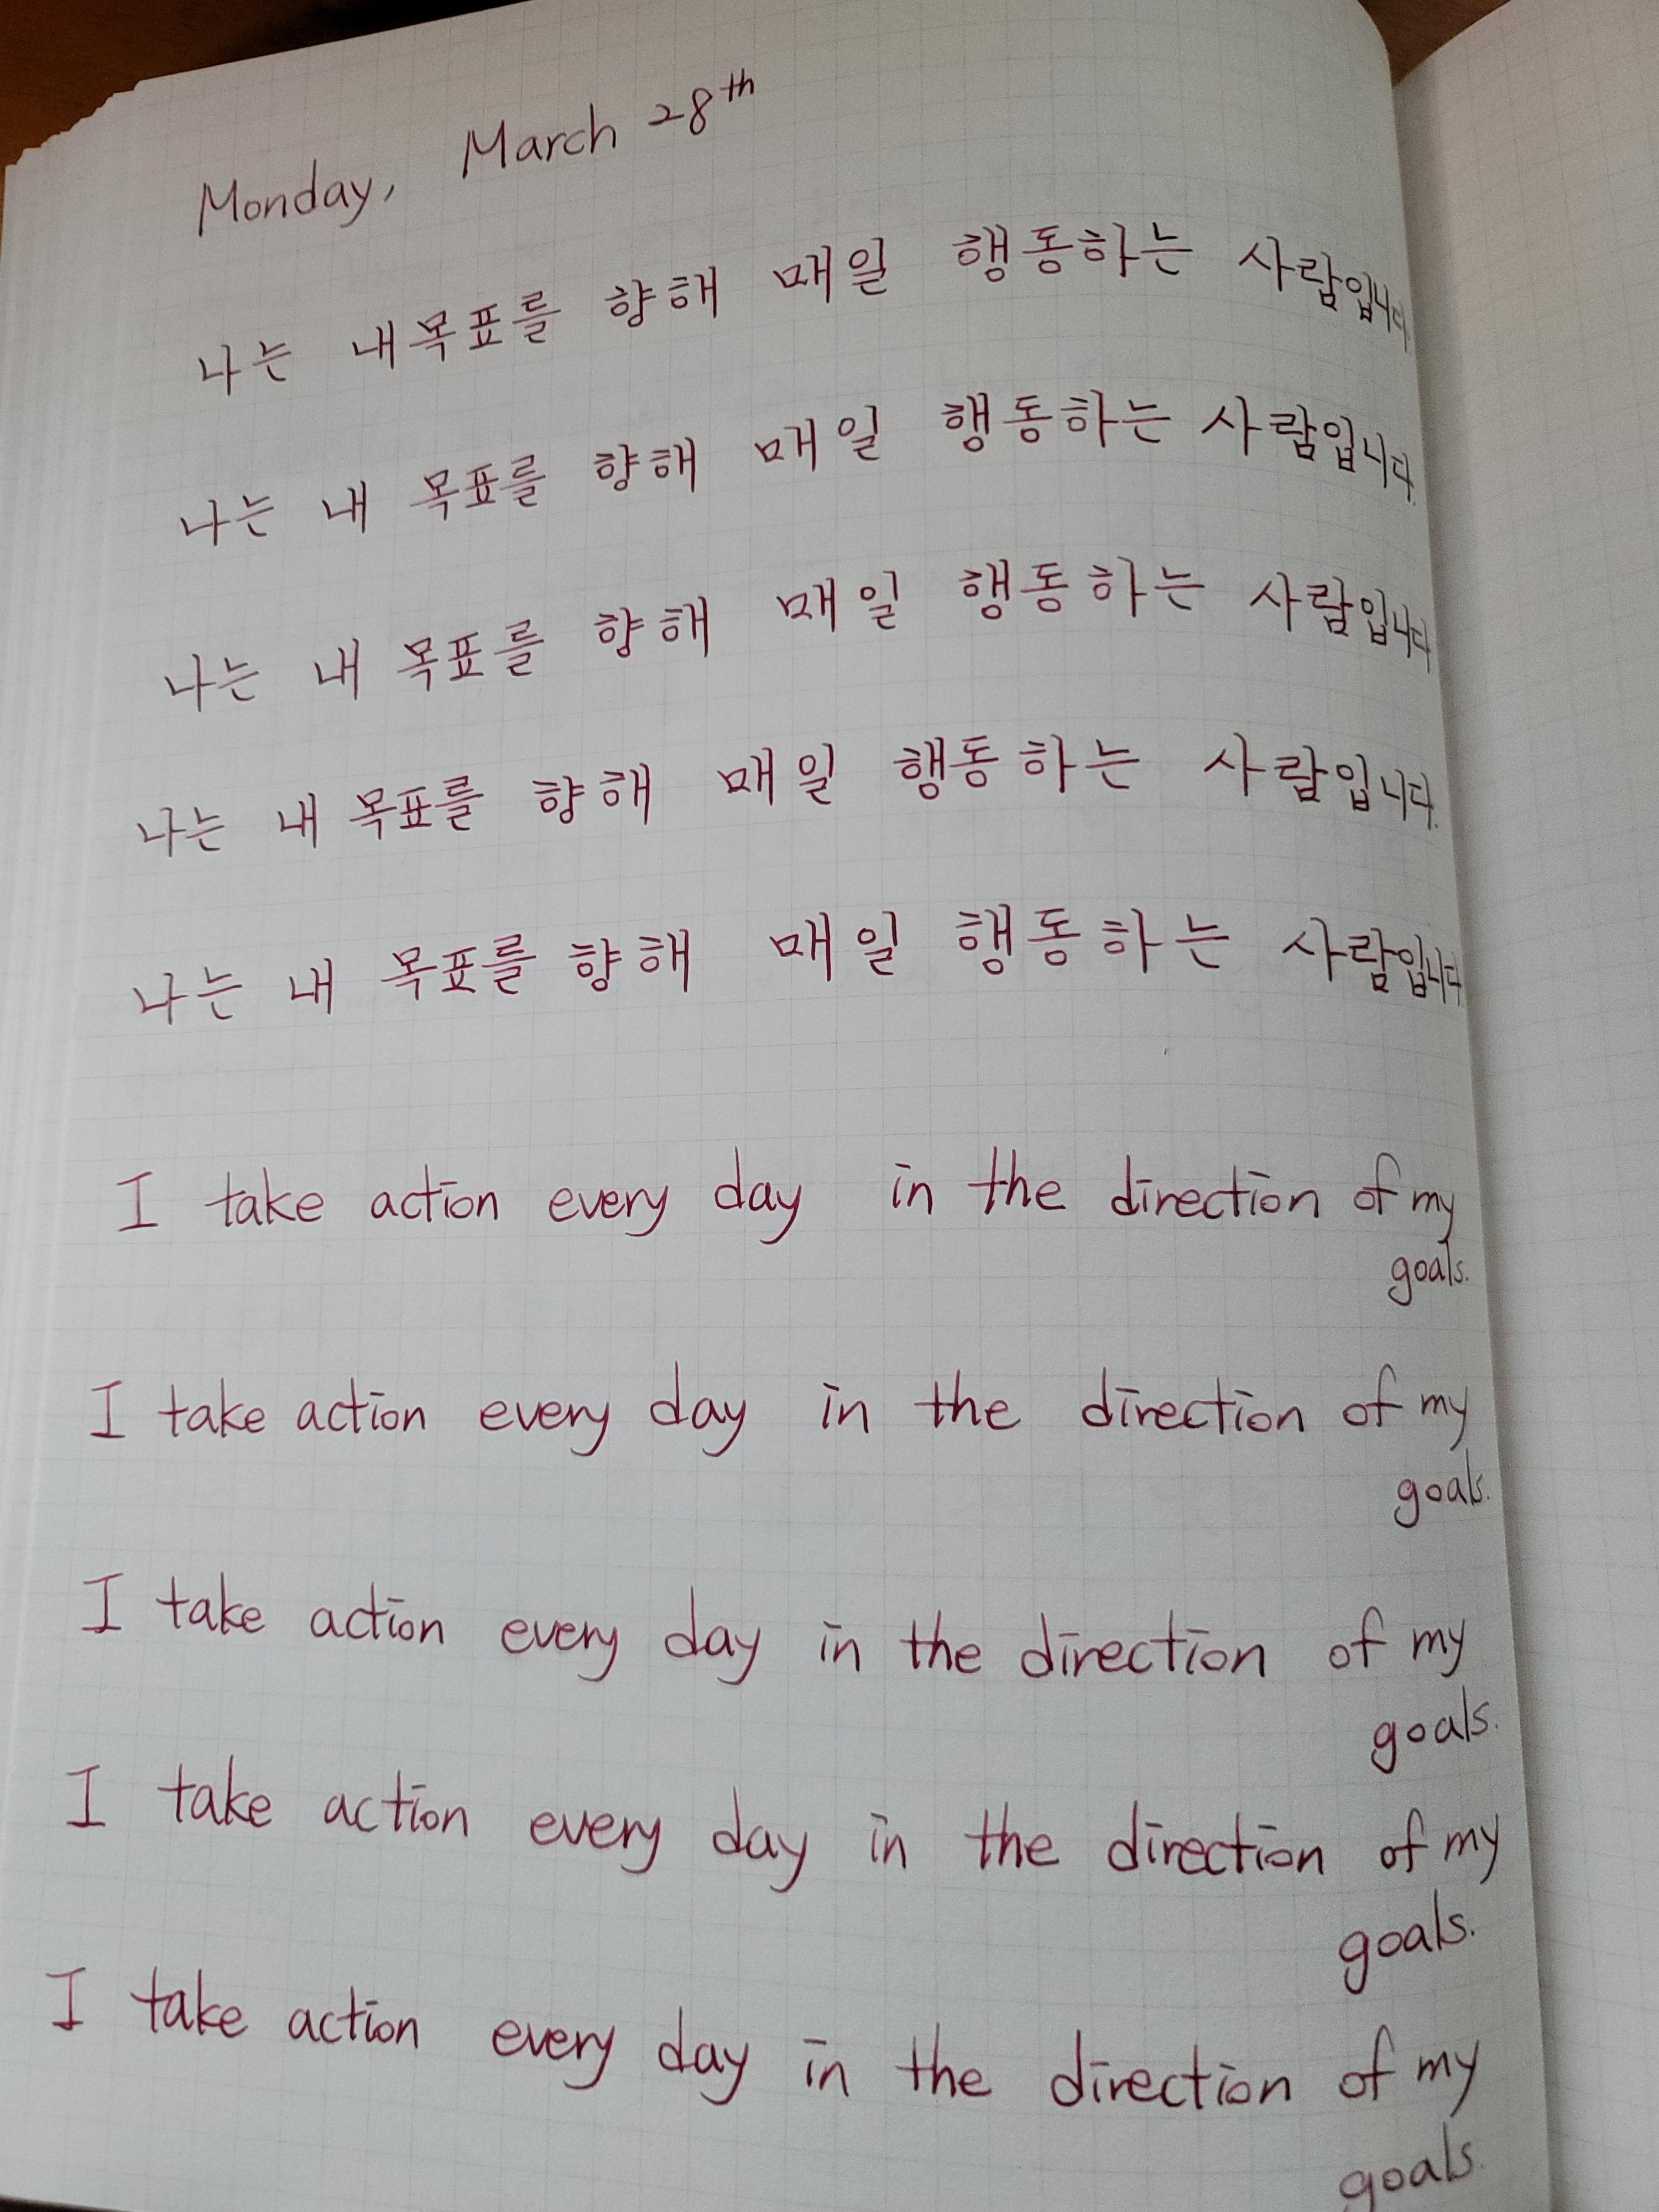 Monday, March 28th
나는 내목표를 향해 매일 행동하는 사람입니다
나는 내 목표를 향해 매일 행동하는 사람입니다.
나는 내 목표를 향해 매일 행동하는 사람입니다
나는 내 목표를 향해 매일 행동하는 사람입니다.
나는 내 목표를 향해 매일 행동하는 사람입니다
I take action every day in the direction of my
goals.
I take action every day in the direction of my
goals.
I take action every day in the direction of my
goals.
I take action every day in the direction of my
goals.
I take action every day in the direction of my
goals.